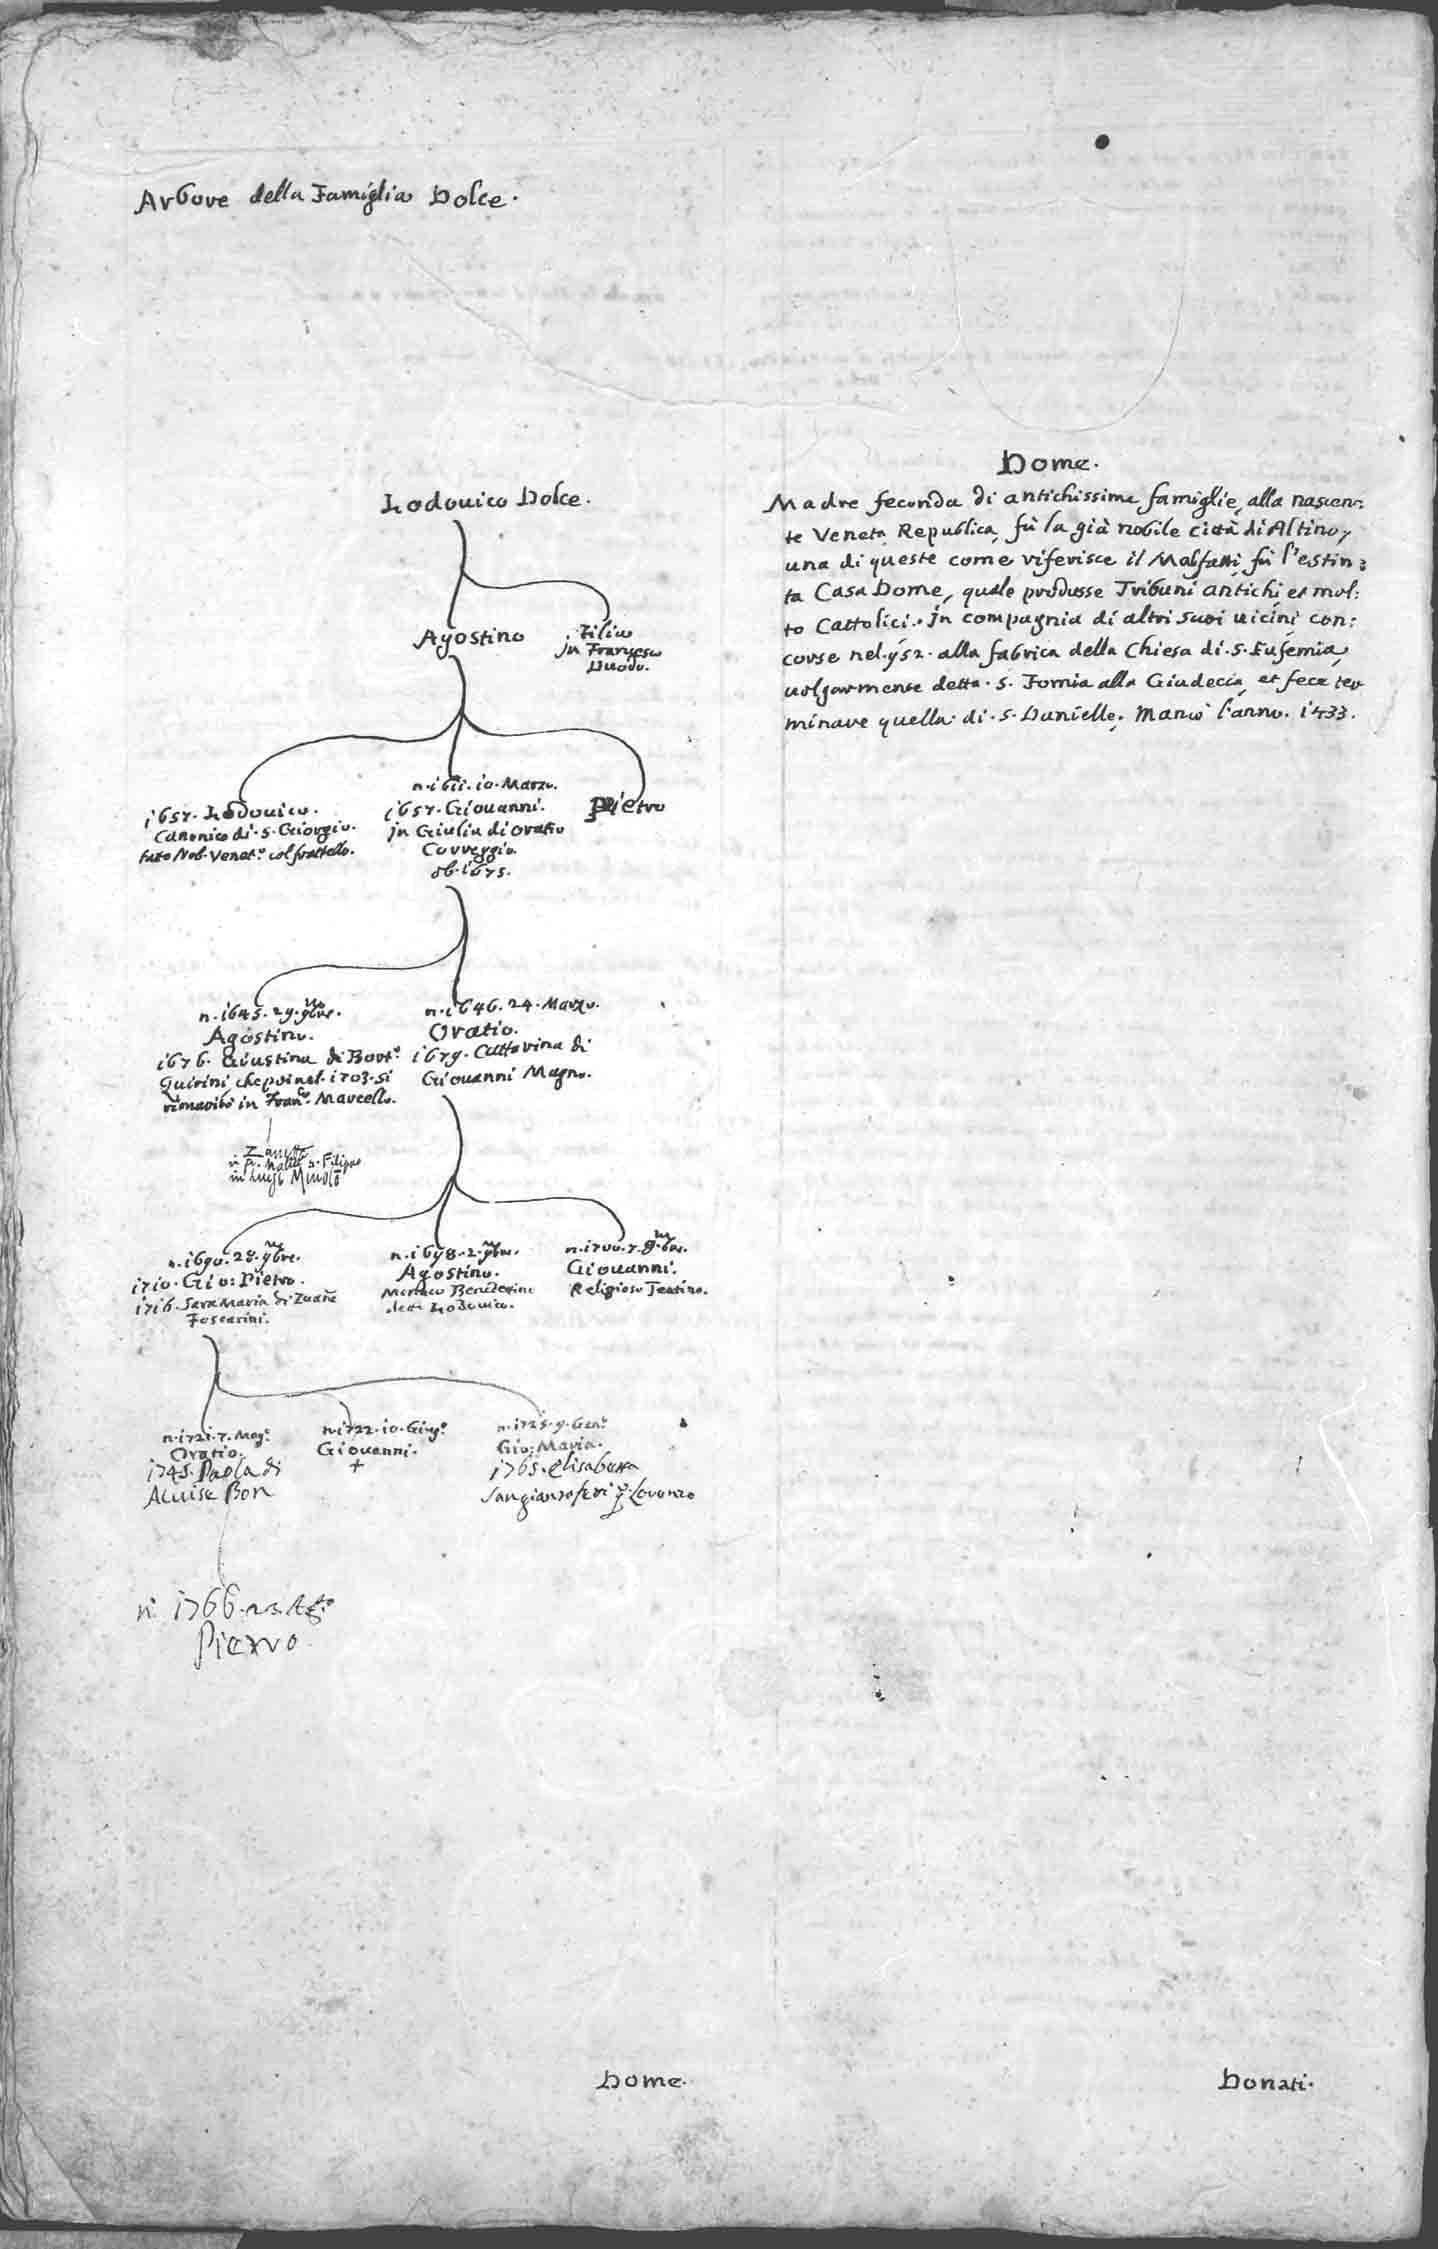 Arbore della Famiglia Dolce.
Lodouico Dolce.
Agostino
Filia
in Francesco
Duodo.
1657. Lodouico.
Canonico di S. Giorgio.
fato Nob. Venet.º col frattello.
n. 1611. 10. Marzo.
1657. Giouanni.
in Giulia di Oratio
Correggio.
ob. 1675.
Pietro
n. 1645. 29. 9bre.
Agostino.
1676. Giustina di Bort.º
Quirini, che poi nel. 1703. si
rimaritò in Fran.co Marcello.
n. 1646. 24. Marzo.
Oratio.
1679. Cattarina di
Giouanni Magno.
Zanetta
in Luigi
n. 1690. 28. 9bre.
1710. Gio: Pietro.
1716. Sara Maria di Zuane
Foscarini.
n. 1698. 2. 9bre.
Agostino.
Monaco Benedetino
Lodouico.
n. 1700. 7. 8bre.
Giouanni.
Religioso Teatino.
n. 1721. 7. Mag.º
Oratio.
1745. Paola di
Aluise Bon
n. 1722. 10. Giug.º
Giouanni.
+
n. 1725. 9. Gen.º
Gio: Maria.
1765. Elisabetta
Sangiantofetti q. Lorenzo
n. 1766. 23. Ag.to
Pietro
Dome.
Madre feconda di antichissime famiglie, alla nascen:
te Veneta Republica, fù la già nobile città di Altino,
una di queste come riferisce il Malfatti, fù l'estin:
ta Casa Dome, quale produsse Tribuni antichi, et mol:
to Cattolici. in compagnia di altri suoi uicini con:
corse nel. 952. alla fabrica della Chiesa di. S. Eufemia,
uolgarmente detta. S. Fomia alla Giudecca, et fece ter
minare quella di. S. Danielle; Mancò l'anno. 1433.
Dome.
Donati.